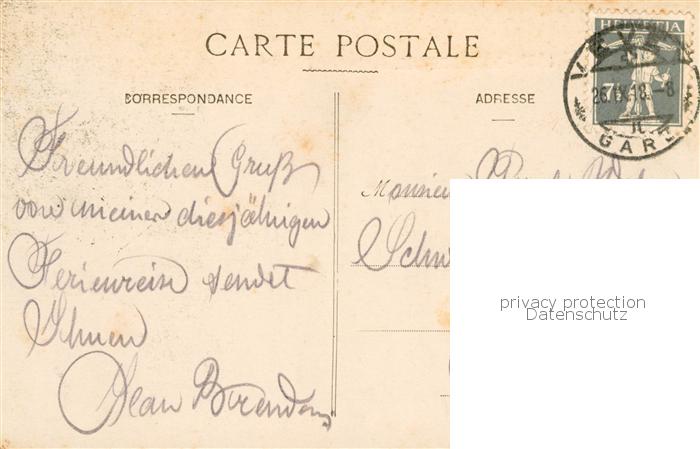 CARTE POSTALE
CORRESPONDANCE
ADRESSE
HELVETIA
VEVEY
26.IX.18.-8
GARE
Freundlichen Gruß
von meiner diesjährigen
Ferienreise sendet
Ihnen
Jean
Monsieur
privacy protection
Datenschutz